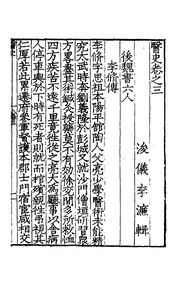 醫史卷之三
浚儀李濂輯
後魏書六人
李修傳
李修字思祖本陽平館陶人父亮少學醫術未能精
究太武時奔劉義隆於彭城又就沙門僧坦研習眾
方略盡其術針灸授藥莫不有效徐兗閒多所救恤
四方疾苦不遠千里竟往從之亮大為廳事以舍病
人停車輿於下時有死者則就而棺殯親往弔視其
仁厚若此累遷府參軍督護本郡士門宿官咸相交